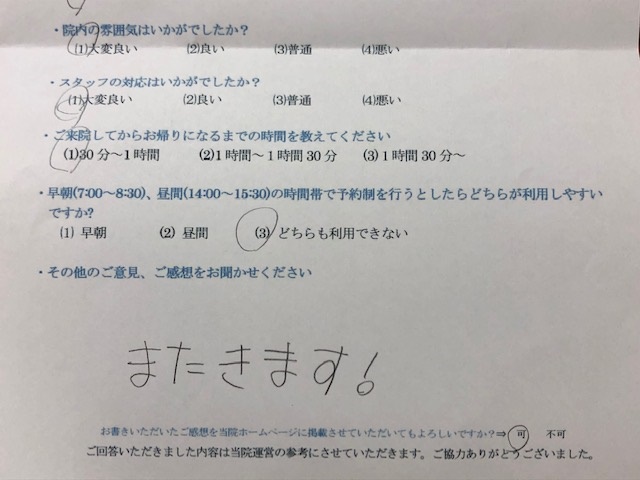 ・院内の雰囲気はいかがでしたか？
(1)大変良い (2)良い (3)普通 (4)悪い
・スタッフの対応はいかがでしたか？
(1)大変良い (2)良い (3)普通 (4)悪い
・ご来院してからお帰りになるまでの時間を教えてください
(1)30分～1時間 (2)1時間～1時間30分 (3)1時間30分～
・早朝(7:00～8:30)、昼間(14:00～15:30)の時間帯で予約制を行うとしたらどちらが利用しやすい
ですか?
(1) 早朝 (2) 昼間 (3) どちらも利用できない
・その他のご意見、ご感想をお聞かせください
またきます!
お書きいただいたご感想を当院ホームページに掲載させていただいてもよろしいですか？⇒ 可 不可
ご回答いただきました内容は当院運営の参考にさせていただきます。ご協力ありがとうございました。